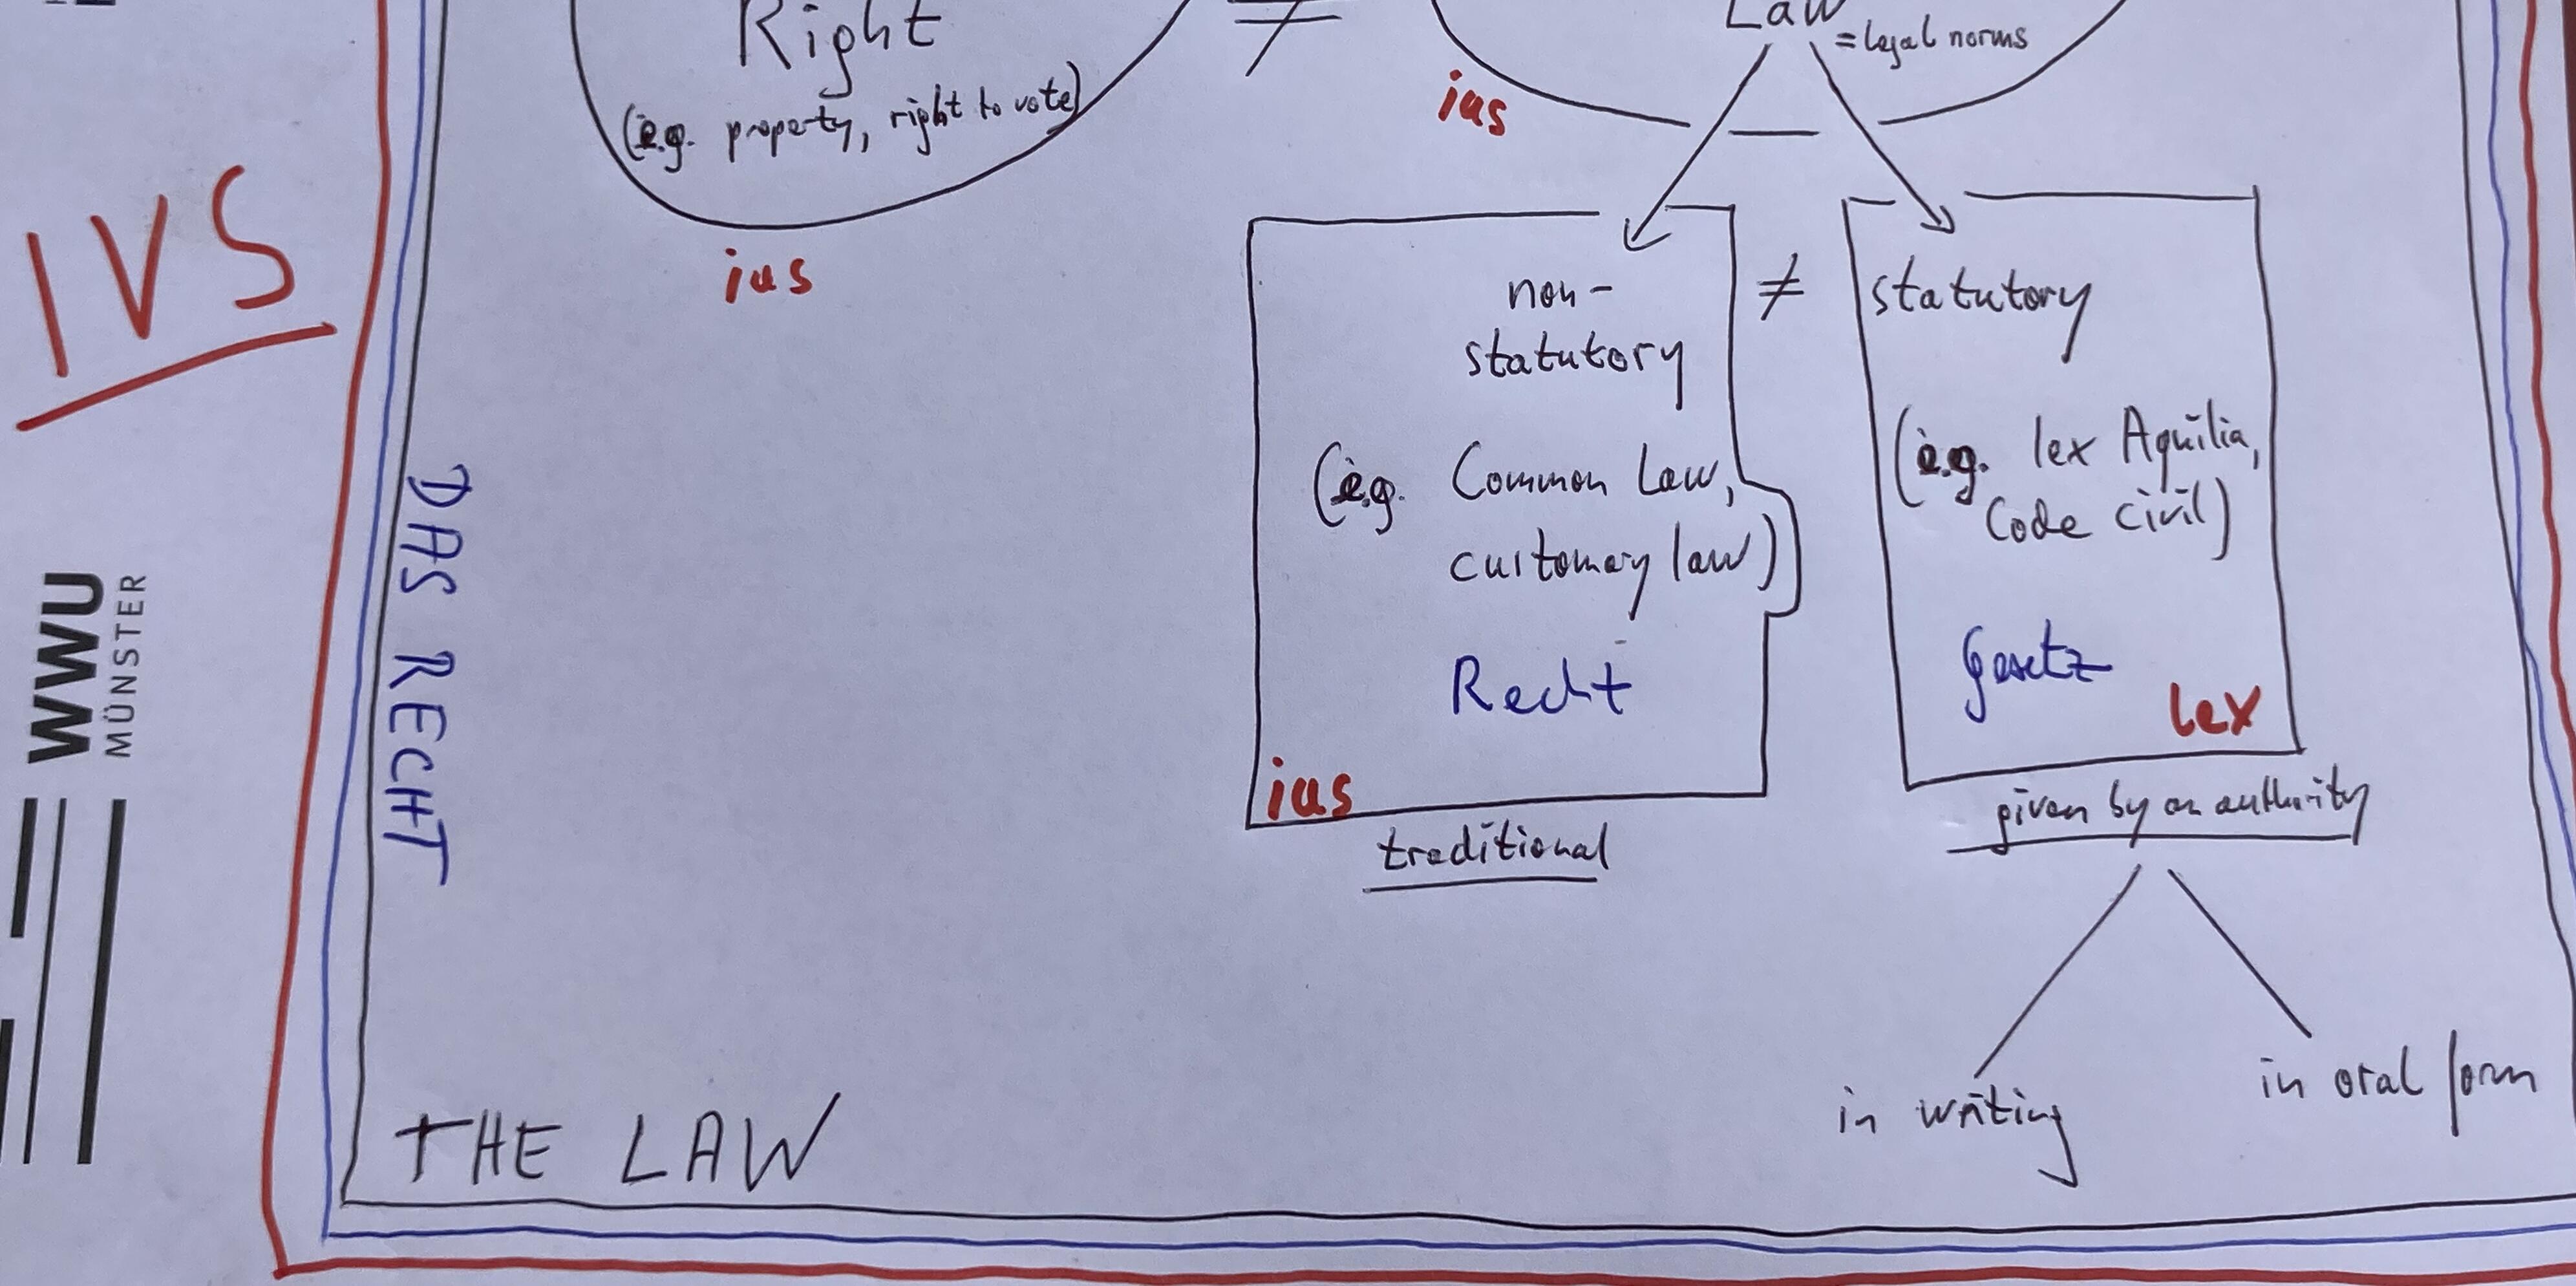 Right
(e.g. property, right to vote)
ius
≠
Law
= legal norms
ius
non-
statutory
(e.g. Common Law,
customary law)
Recht
ius
traditional
≠
statutory
(e.g. lex Aquilia,
Code civil)
Gesetz
lex
given by an authority
in writing
in oral form
IVS
DAS RECHT
THE LAW
WWU
MÜNSTER